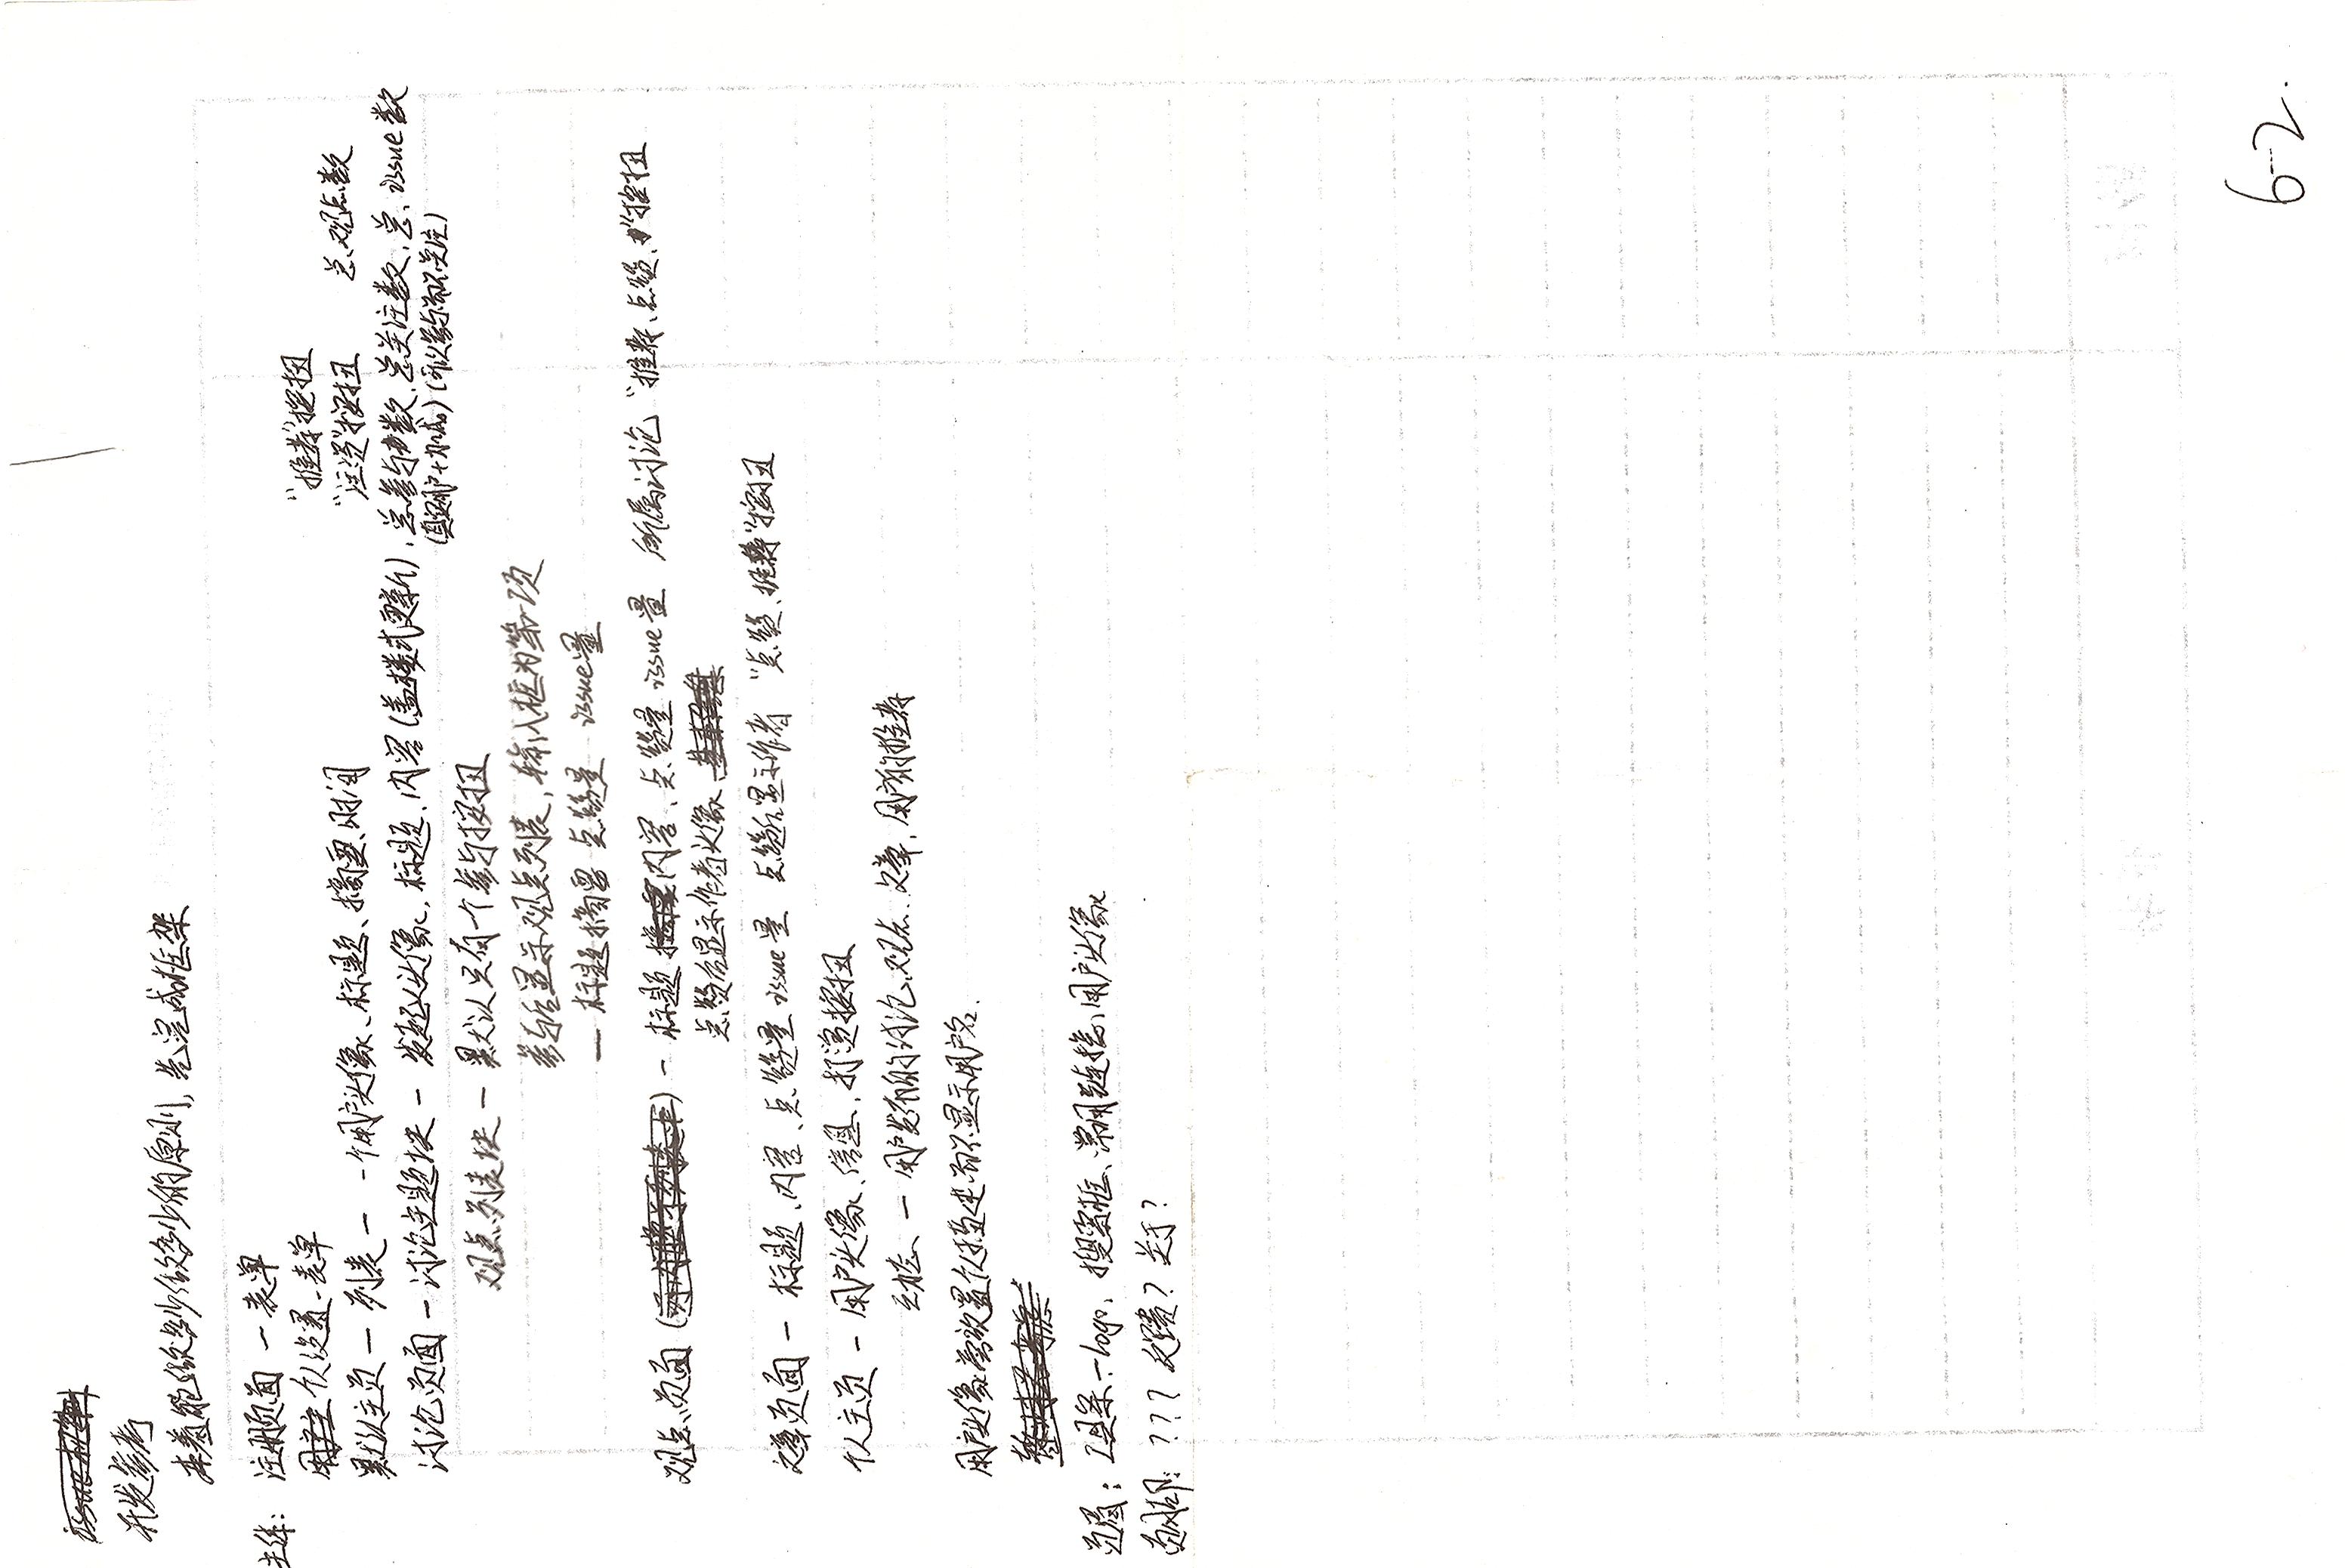 开发参考
本着能做多少做多少的原则，先完成框架
主体：注册页面 — 表单
个人设置 — 表单
默认主页 — 列表 — 一个用户头像、标题、摘要、时间
"推荐"按扭
"注资"按扭 总观点数
讨论页面 — 讨论主题块 — 发起人头像、标题、内容(盖楼式更新)，总参与数、总关注数，总issue数
(可以参与而不关注)
观点列表块 — 默认只有一个参与按扭
参与后显示观点列表，输入框为第一项
— 标题 摘要 点赞量 issue量
观点页面 — 标题 内容、点赞量 issue量 所属讨论 "推荐、点赞"按扭
点赞后显示作者头像
文章页面 — 标题、内容、点赞量 issue量 点赞后显示作者 "点赞、推荐"按扭
个人主页 — 用户头像、信息、打赏按扭
动态 — 用户发布的讨论、观点、文章，用户的推荐
用户头像旁放置个人描述而不显示用户名．
页眉：工具条 — logo，搜索框、常用链接、用户头像
页脚：？？？反馈？关于？
6-2.